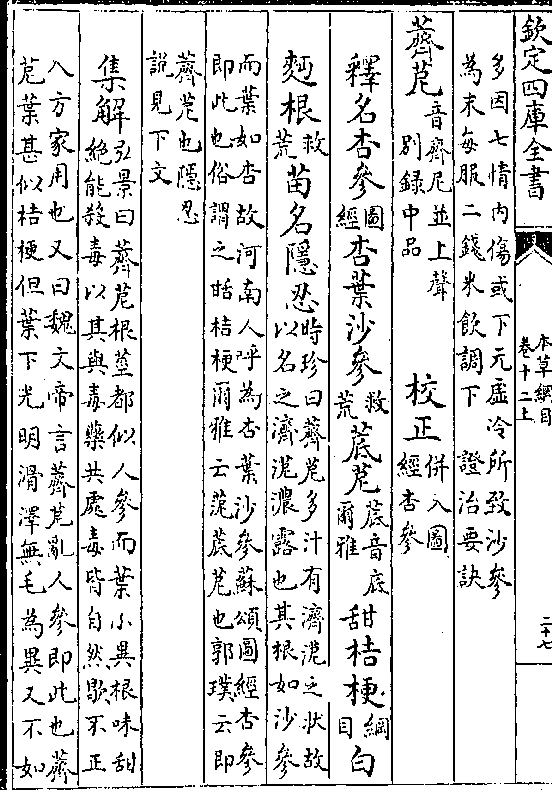 欽定四庫全書
本草綱目
卷十二上
二十七
多因七情內傷或下元虛冷所致沙參
為末每服二錢米飲調下 證治要訣
薺苨音薺尼並上聲
別錄中品 校正併入圖
經杏參
釋名杏參圖
經杏葉沙參救
荒菧苨菧音底
爾雅甜桔梗綱
目白
麪根救
荒苗名隱忍時珍曰薺苨多汁有濟浘之狀故
以名之濟浘濃露也其根如沙參
而葉如杏故河南人呼為杏葉沙參蘇頌圖經杏參
即此也俗謂之甛桔梗爾雅云苨菧苨也郭璞云即
薺苨也隱忍
說見下文
集解弘景曰薺苨根莖都似人參而葉小異根味甜
絶能殺毒以其與毒藥共處毒皆自然歇不正
入方家用也又曰魏文帝言薺苨亂人參即此也薺
苨葉甚似桔梗但葉下光明滑澤無毛為異又不如